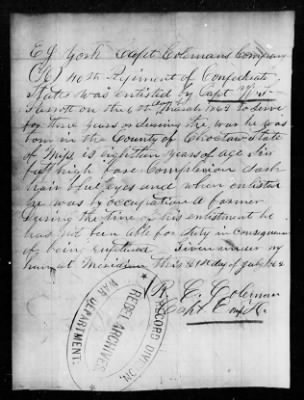 E J York Capt Colemans Company
(K) 40th Regiment of Confederate
States was enlisted by Capt W. S.
on the day March 1862 to serve
for three years or during the war he was
born in the County of Choctaw State
of Miss is eighteen years of age Six
feet high fare Complexion dark
hair blue eyes and when enlisted
he was by occupation a farmer
During the time of his enlistment he
has not been able for duty in consequence
of being Given under my
hand at Meridian this 21st day of July
R. C. Coleman
Capt Co K.
RECORD DIVISION.
REBEL ARCHIVES
WAR DEPARTMENT.